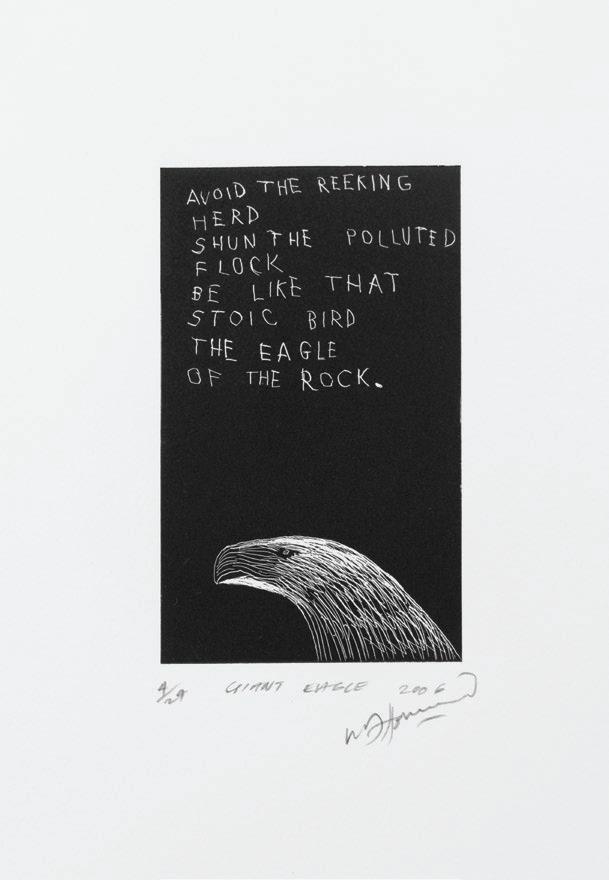 AVOID THE REEKING
HERD
SHUN THE POLLUTED
FLOCK
BE LIKE THAT
STOIC BIRD
THE EAGLE
OF THE ROCK.
GIANT EAGLE 2006